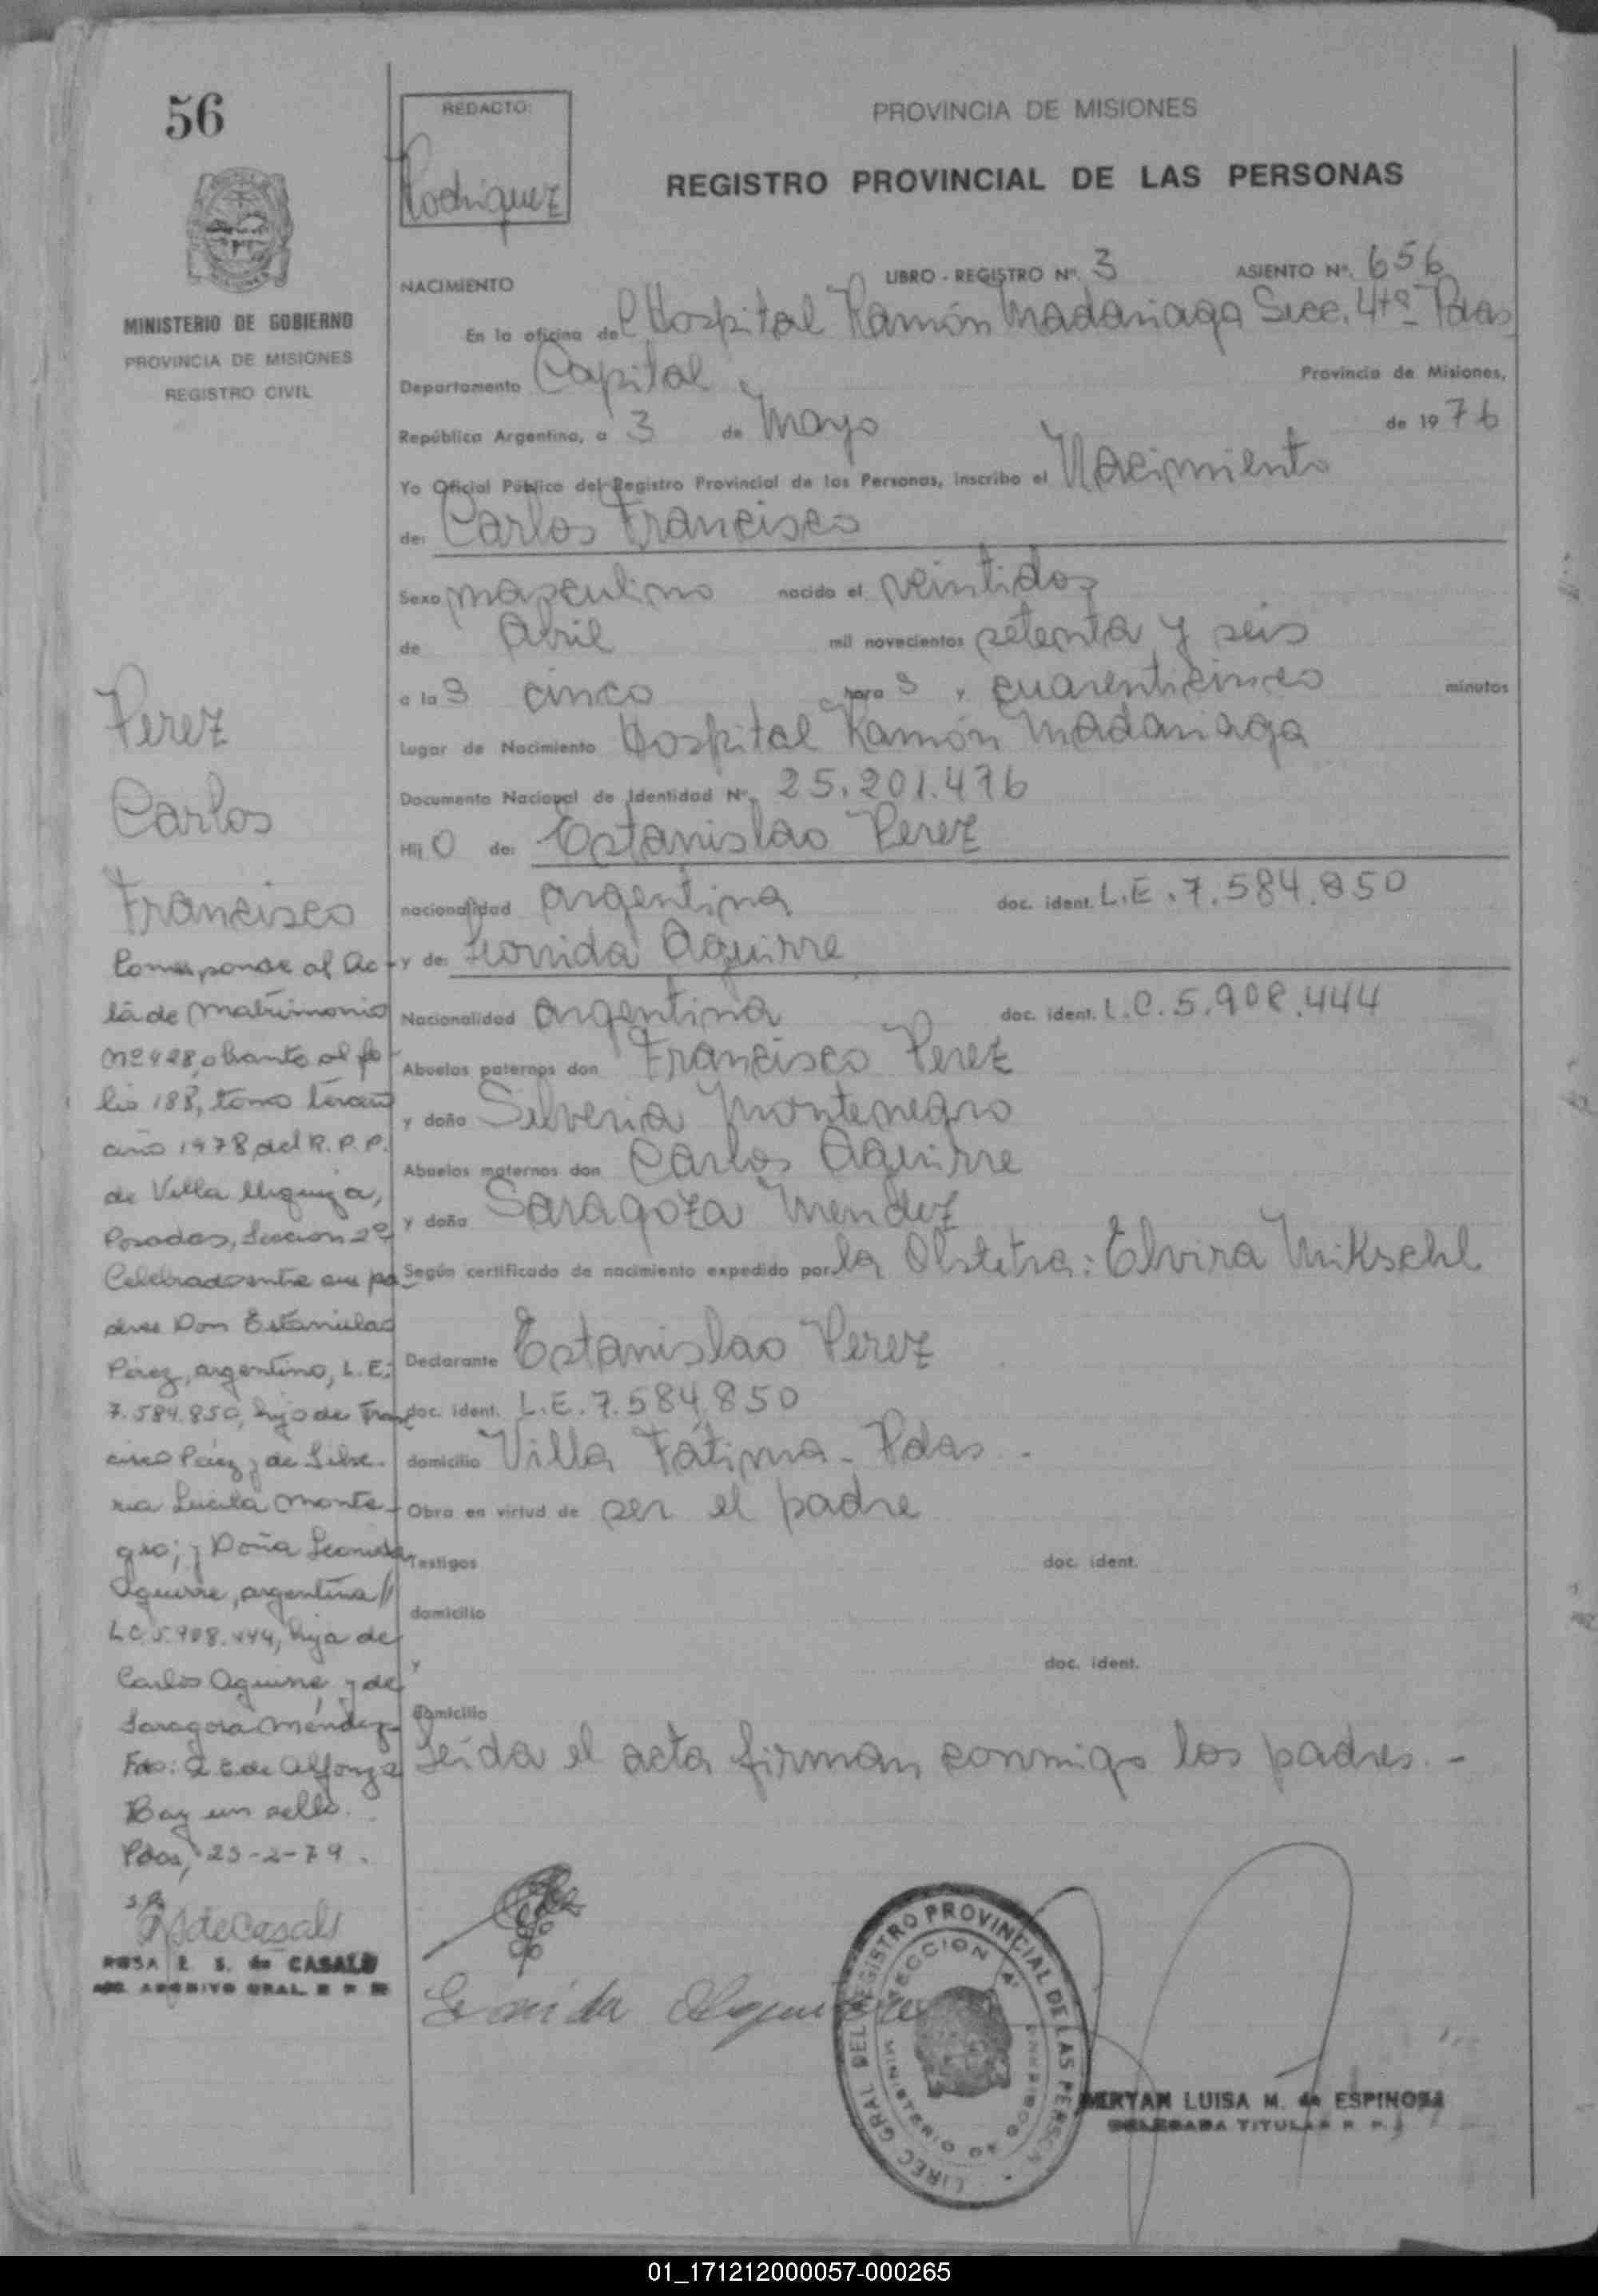 56
REDACTO:
Rodriguez
PROVINCIA DE MISIONES
REGISTRO PROVINCIAL DE LAS PERSONAS
MINISTERIO DE GOBIERNO
PROVINCIA DE MISIONES
REGISTRO CIVIL
NACIMIENTO
LIBRO - REGISTRO Nº. 3 ASIENTO Nº. 656
En la oficina del Hospital Ramón Madariaga Secc. 4ta Pdas
Departamento Capital Provincia de Misiones,
República Argentina, a 3 de Mayo de 1976
Yo Oficial Público del Registro Provincial de las Personas, inscribo el Nacimiento
de: Carlos Francisco
Sexo masculino nacido el veintidos
de Abril mil novecientos setenta y seis
a las cinco horas y cuarenticinco minutos
Lugar de Nacimiento Hospital Ramón Madariaga
Documento Nacional de Identidad Nº. 25.201.476
Hijo de: Estanislao Perez
nacionalidad argentina doc. ident. L.E. 7.584.850
y de: Leonida Aguirre
Nacionalidad argentina doc. ident. L.C. 5.908.444
Abuelos paternos don Francisco Perez
y doña Silveria Montenegro
Abuelos maternos don Carlos Aguirre
y doña Saragoza Mendez
Según certificado de nacimiento expedido por la Obstetra: Elvira Mikschl
Declarante Estanislao Perez
doc. ident. L.E. 7.584.850
domicilio Villa Fátima - Pdas -
Obra en virtud de ser el padre
Testigos doc. ident.
domicilio
y doc. ident.
domicilio
Leída el acta firman conmigo los padres. -
Leonida Aguirre
DIREC GRAL DEL REGISTRO PROVINCIAL DE LAS PERSONAS
SECCION 4ª
MINISTERIO DE GOBIERNO
MERYAN LUISA M. de ESPINOSA
DELEGADA TITULAR R. P.
Perez
Carlos
Francisco
Corresponde al Ac-
ta de Matrimonio
Nº 428, obrante al fo-
lio 188, tomo tercero
año 1978, del R.P.P.
de Villa Urquiza,
Posadas, Seccion 2ª
Celebrado entre sus pa-
dres Don Estanislao
Pérez, argentino, L.E:
7.584.850, hijo de Fran
cisco Pérez y de Silve-
ria Lucila Monte-
gro; y Doña Leonida
Aguirre, argentina //
LC 5.908.444, hija de
Carlos Aguirre y de
Saragoza Méndez
Fdo: de Alfonzo
Hay un sello.
Pdas, 23-2-79.
de Casals
ROSA E. S. de CASALS
ARCHIVO GRAL R P P
01_171212000057-000265